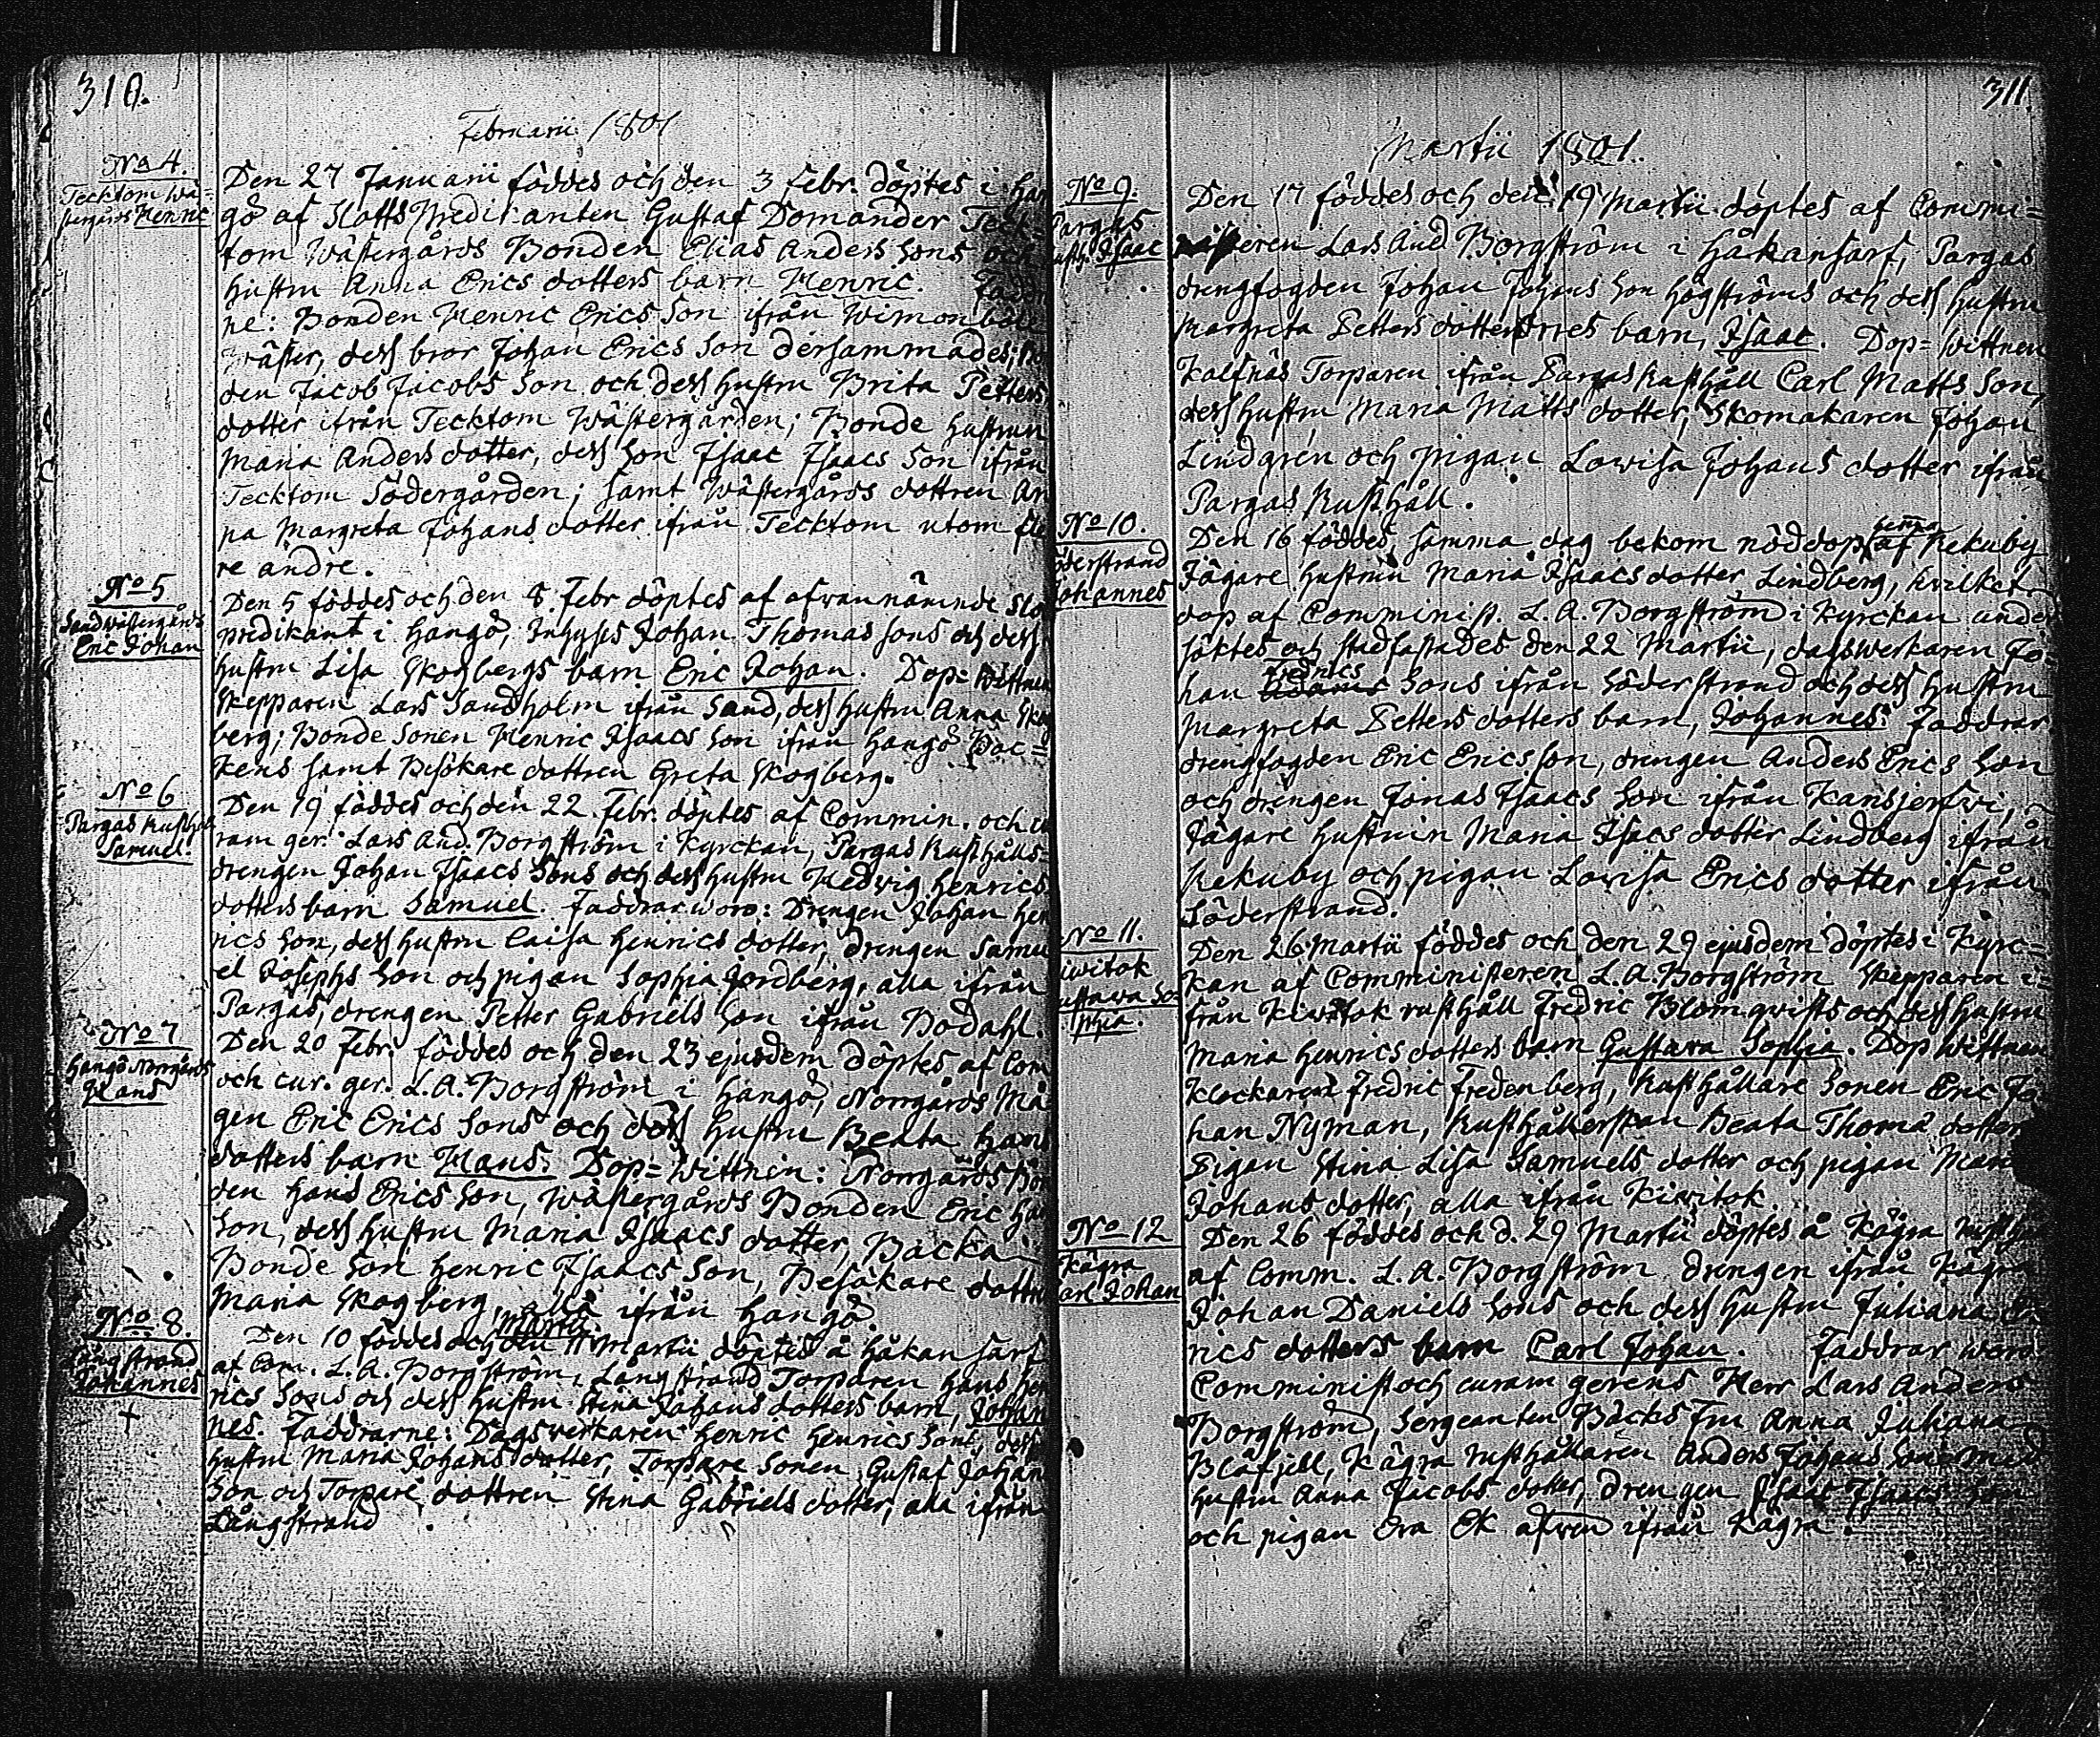 310.
Februarii 1801
No 4.
Tecktom Wä=
stergårds Henric
Den 27 Januarii föddes och den 3 Febr. döptes i Han
gö af Slotts Predikanten Gustaf Domander Teck=
tom Wästergårds Bonden Elias Anders Sons och
hustru Anna Erics dotters barn Henric. Faddr
ne: Bonden Henric Erics Son ifrån Wimonböle
wäster, dess bror Johan Erics Son dersammades;
den Jacob Jacobs Son och dess hustru Brita Petters
dotter ifrån Tecktom Wästergården; Bonde hustrun
Maria Anders dotter, dess Son Isaac Isaacs Son ifrån
Tecktom Södergården; samt Wästergårds dottren An
na Margreta Johans dotter ifrån Tecktom utom fle
re andre.
No 5
Sandwästergårds
Eric Johan
Den 5 föddes och den 8 Febr döptes af ofvannämnde Slo
predikant i Hangö, Inhyses Johan Thomas Sons och dess
hustru Lisa Skogbergs barn Eric Johan. Dop=Wittnen
Skepparen Lars Sandholm ifrån Sand, dess hustru Anna Skog
berg; Bonde Sonen Henric Isaacs Son ifrån Hangö Bac=
kens samt Besökare dottren Greta Skogberg.
No 6
Pargas Rusthåll
Samuel
Den 19 föddes och den 22 Febr. döptes af Commin. och cu
ram ger. Lars And. Borgström i Kyrckan, Pargas Rusthålls=
drengen Johan Isaacs Sons och dess hustru Hedvig Henrics
dotters barn Samuel. Faddrar woro: Drengen Johan Hen
rics Son, dess hustru Caisa Henrics dotter, drengen Samu
el Josephs Son och pigan Sophia Jordberg, alla ifrån
Pargas, drengen Petter Gabriels Son ifrån Bodahl.
No 7
Hangö Norrgårds
Hans
Den 20 Febr. föddes och den 23 ejusdem döptes af Com
och cur. ger. L. A. Borgström i Hangö, Norrgårds Må
gen Eric Erics Sons och dess hustru Beata Hans
dotters barn Hans. Dop=Wittnen: Norrgårds Bon
den Hans Erics Son, Wästergårds Bonden Eric Han
Son, dess hustru Maria Isaacs dotter, Backa
Bonde Son Henric Isaacs Son, Besökare dottren
Maria Skogberg, alla ifrån Hangö.
Martii.
No 8.
Långstrand
Johannes
†
Den 10 föddes och den 11 Martii döptes å Håkansarf
af Com. L. A. Borgström, Långstrand Torparen Hans Hen
rics Sons och dess hustru Stina Johans dotters barn, Johan
nes. Faddrarne: Dagsverkaren Henric Henrics Son, dess
hustru Maria Johans dotter, Torpare Sonen Gustaf Johan
Son och Torpare dottren Stina Gabriels dotter, alla ifrån
Långstrand.
311
Martii 1801.
No 9.
Pargas
Rusth. Isaac
Den 17 föddes och den 19 Martii döptes af Commi=
nisteren Lars And. Borgström i Håkansarf, Pargas
drengfogden Johan Johans Son Högströms och dess hustru
Margreta Petters dotters barn, Isaac. Dop=Wittnen
Kalfnäs Torparen ifrån Pargas Rusthåll Carl Matts Son,
dess hustru Maria Matts dotter, Skomakaren Johan
Lindgren och pigan Lowisa Johans dotter ifrån
Pargas Rusthåll.
No 10.
Söderstrand
Johannes
Den 16 föddes, samma dag bekom nöddop af Rekuby
Jägare hustrun Maria Isaacs dotter Lindberg, hvilket
dop af Comminist. L. A. Borgström i Kyrckan under
söktes och stadfästades den 22 Martii, dagswerkaren Jo=
han Fredrics Sons ifrån Söderstrand och dess hustru
Margreta Petters dotters barn, Johannes. Faddrar
drengfogden Eric Ericsson, drengen Anders Erics Son
och drengen Jonas Isaacs Son ifrån Kansjerfvi,
Jägare hustrun Maria Isacs dotter Lindberg ifrån
Rekuby och pigan Lovisa Erics dotter ifrån
Söderstrand.
No 11.
Kiwitok
Gustawa So=
phia.
Den 26 Martii föddes och den 29 ejusdem döptes i Kyrc=
kan af Comministeren L. A. Borgström Skepparen i=
från Kiwitok rusthåll Fredric Blomqvists och dess hustru
Maria Henrics dotters barn Gustava Sophia. Dop Wittnen
Klockaren Fredric Fredenberg, Rusthållare Sonen Eric Jo
han Nyman, Rusthållerskan Beata Thomæ dotter
Pigan Stina Lisa Samuels dotter och pigan Mari
Johans dotter, alla ifrån Kiwitok
No 12
Kågra
Carl Johan
Den 26 föddes och d. 29 Martii döptes å Kågra
af Comm. L. A. Borgström drengen ifrån Kågra
Johan Daniels Sons och dess hustru Juliana E
rics dotters barn Carl Johan. Faddrar woro
Comminist och curam gerens Herr Lars Anders
Borgström, Sergeanten Bäcks Fru Anna Juliana
Blåfjell, Kågra rusthållaren Anders Johans Son med
hustru Anna Jacobs dotter, drengen Isaac Isaacs Son
och pigan Eva Ek äfven ifrån Kågra.